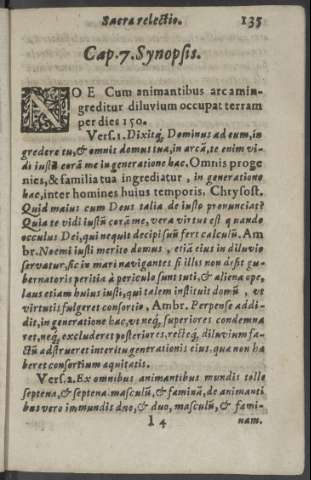 Sacra relectio. 135
Cap.7. Synopsis.
NOE Cum animantibus arcam in-
greditur diluvium occupat terram
per dies 150.
Vers. 1. Dixitq́, Dominus ad eum, in
gredere tu, & omnis domus tua, in arcã, te enim vi-
di iustũ corã me in generatione hac, Omnis proge
nies, & familia tua ingrediatur, in generatione
hac, inter homines huius temporis, Chrysost.
Quid maius cum Deus talia de iusto pronunciat?
Quia te vidi iustũ corã me, vera virtus est quando
occulus Dei, qui nequit decipi suũ fert calculũ. Am
br. Noemi iusti merito domus, etiã eius in diluvio
servatur, sic in mari navigantes si illis non desit gu-
bernatoris peritia à periculo sunt tuti, & aliena ope,
laus etiam huius iusti, qui talem instituit domũ, ut
virtutis fulgeret consortio, Ambr. Perpense addi-
dit, in generatione hac, ut neq́, superiores condemna
ret, neq́, excluderet posteriores, recteq́, diluvium fa-
ctũ adstrueret interitu generationis eius, qua non ha
beret consortium aquitatis.
Vers. 2. Ex omnibus animantibus mundis tolle
septena, & septena masculũ, & faminã, de animanti
bus vero immundis duo, & duo, masculũ, & fami-
I 4 nam.